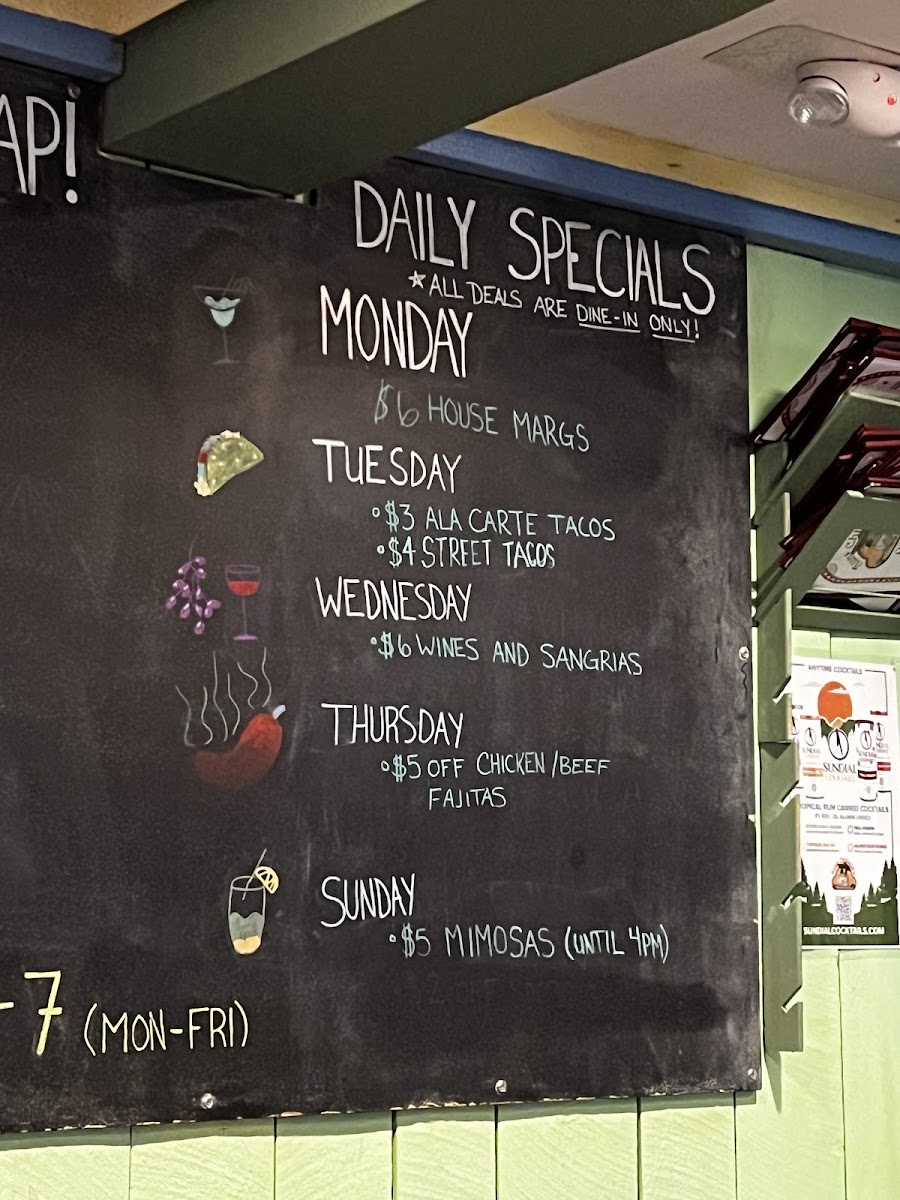 AP!
DAILY SPECIALS
*ALL DEALS ARE DINE-IN ONLY!
MONDAY
$6 HOUSE MARGS
TUESDAY
• $3 ALA CARTE TACOS
• $4 STREET TACOS
WEDNESDAY
• $6 WINES AND SANGRIAS
THURSDAY
• $5 OFF CHICKEN/BEEF
FAJITAS
SUNDAY
• $5 MIMOSAS (UNTIL 4PM)
-7 (MON-FRI)
ANYTIME COCKTAILS
SUNDIAL
COCKTAILS
TROPICAL RUM CANNED COCKTAILS
SUNDIALCOCKTAILS.COM